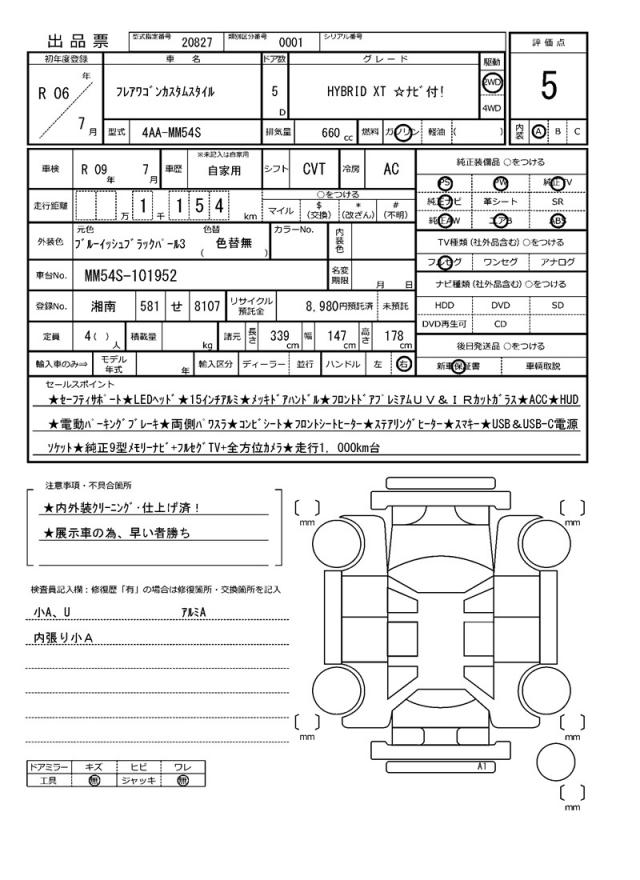 出品票 型式指定番号 20827 類別区分番号 0001 シリアル番号
評価点
5
内装 A B C
初年度登録 車名 ドア数 グレード 駆動
R 06 年 7 月
フレアワゴンカスタムスタイル 5 D HYBRID XT ☆ナビ付! 2WD 4WD
型式 4AA-MM54S 排気量 660 cc 燃料 ガソリン 軽油 ( )
車検 R 09 年 7 月 車歴 ※未記入は自家用 自家用 シフト CVT 冷房 AC
走行距離 万 1 千 1 5 4 km ○をつける
マイル $(交換) *(改ざん) #(不明)
外装色 元色 ブルーイッシュブラックパール3 色替 ( 色替無 ) カラーNo. 内装色
車台No. MM54S-101952 名変期限 月 日
登録No. 湘南 581 せ 8107 リサイクル預託金 8,980円預託済 未預託
定員 4( ) 人 積載量 kg 諸元 長さ 339 cm 幅 147 cm 高さ 178 cm
輸入車のみ⇒ モデル年式 年 輸入区分 ディーラー 並行 ハンドル 左 右
純正装備品 ○をつける
PS PW 純正TV
純正ナビ 革シート SR
純正AW エアB ABS
TV種類(社外品含む)○をつける
フルセグ ワンセグ アナログ
ナビ種類(社外品含む)○をつける
HDD DVD SD
DVD再生可 CD
後日発送品 ○をつける
新車保証書 車輌取説
セールスポイント
★セーフティサポート★LEDヘッド★15インチアルミ★メッキドアハンドル★フロントドアプレミアムUV&IRカットガラス★ACC★HUD
★電動パーキングブレーキ★両側パワスラ★コンビシート★フロントシートヒーター★ステアリングヒーター★スマキー★USB&USB-C電源
ソケット★純正9型メモリーナビ+フルセグTV+全方位カメラ★走行1,000km台
注意事項・不具合箇所
★内外装クリーニング・仕上げ済!
★展示車の為、早い者勝ち
検査員記入欄:修復歴「有」の場合は修復箇所・交換箇所を記入
小A、U アルミA
内張り小A
ドアミラー キズ ヒビ ワレ
工具 無 ジャッキ 無
[ ] mm
[ ] mm
[ ] mm
[ ] mm
A1
[ ] mm